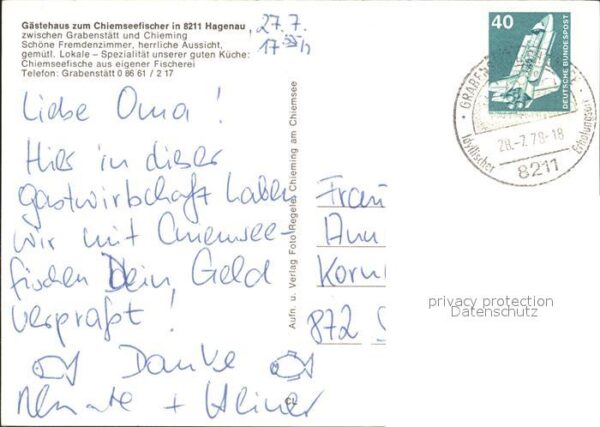 Gästehaus zum Chiemseefischer in 8211 Hagenau
zwischen Grabenstätt und Chieming
Schöne Fremdenzimmer, herrliche Aussicht,
gemütl. Lokale – Spezialität unserer guten Küche:
Chiemseefische aus eigener Fischerei
Telefon: Grabenstätt 0 86 61 / 2 17
27.7.
Liebe Oma !
Hier in dieser
gastwirtschaft haben
wir mit Chiemsee-
fischen Dein Geld
verpraßt !
Danke
+ Heiner
Aufn. u. Verlag Foto Regele, Chieming am Chiemsee
40
DEUTSCHE BUNDESPOST
Idyllischer Erholungsort
28.-7.78-18
8211
Frau
Ann
Korn
872
privacy protection
Datenschutz